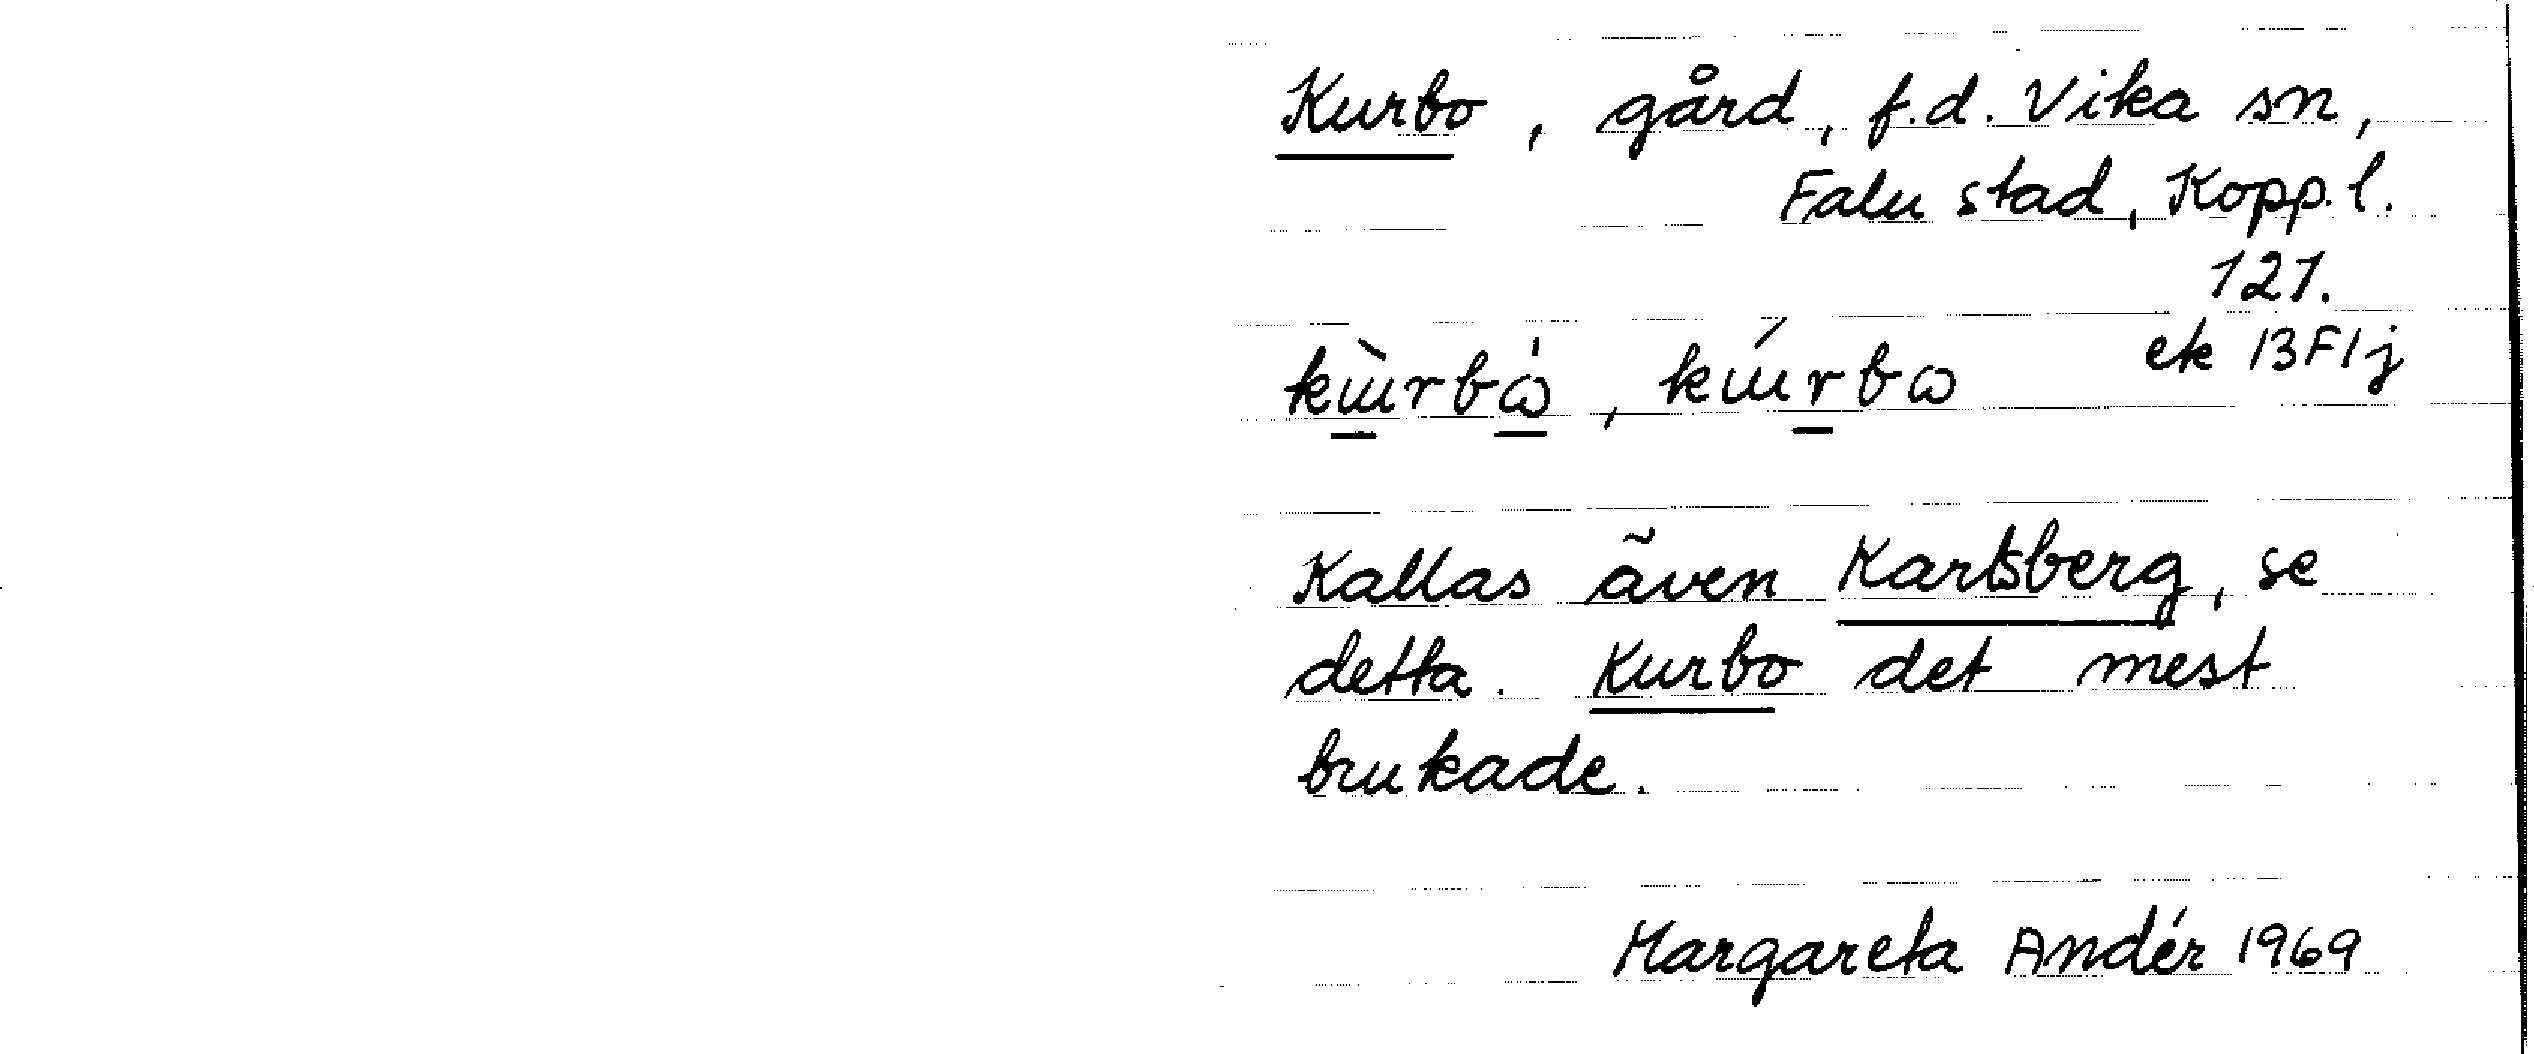 Kurbo, gård, f.d. Vika sn,
Falu stad, Kopp.l.
121.
ek 13F1j
kɯ̀rbὼ, kɯ́rbω
Kallas även Karlsberg, se
detta. Kurbo det mest
brukade.
Margareta Andér 1969